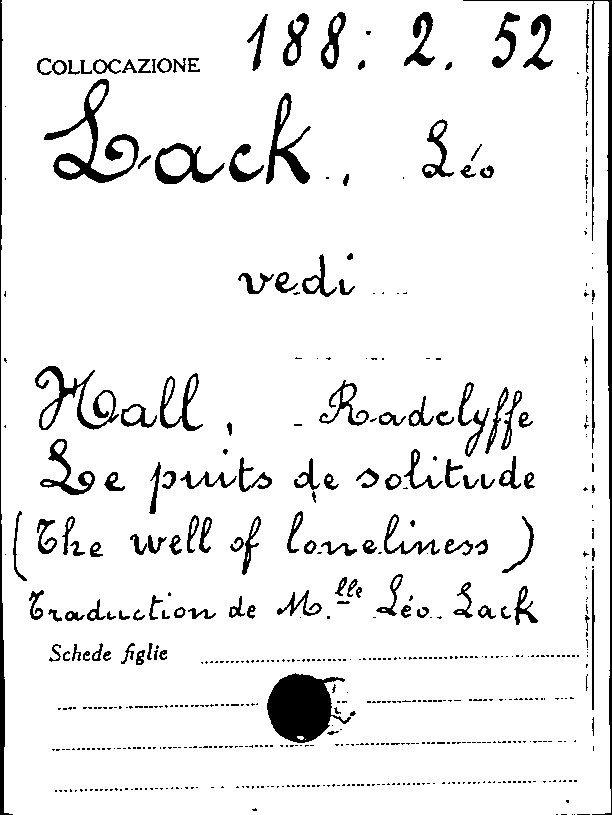 COLLOCAZIONE 188: 2. 52
Lack, Léo
vedi
Hall, Radclyffe
Le puits de solitude
(The well of loneliness)
Traduction de M.lle Léo Lack
Schede figlie